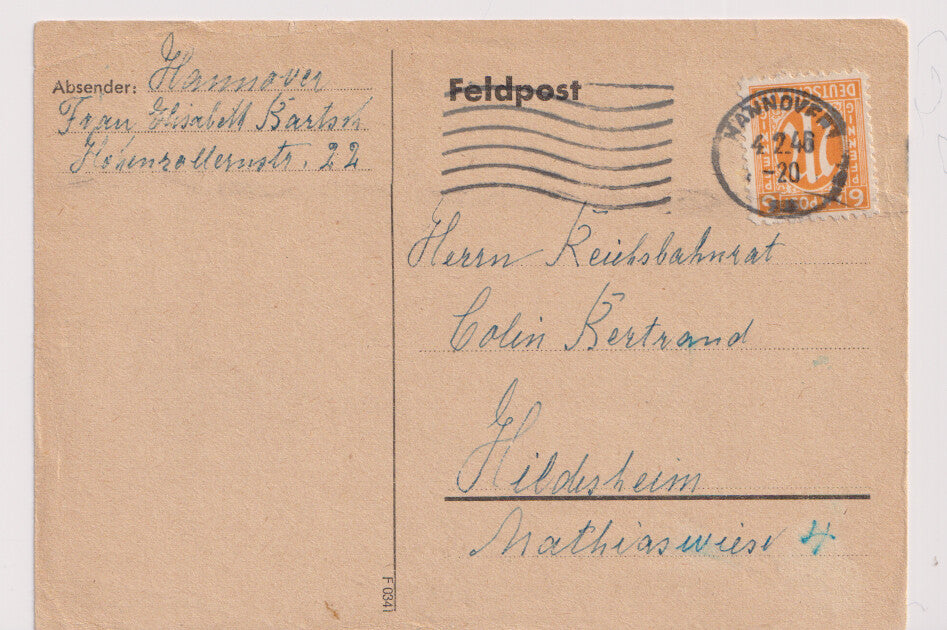 Absender: Hannover
Frau Elisabett Bartsch
Hohenzollernstr. 22
Feldpost
HANNOVER
4.2.46
-20
DEUTSCHE
POST
6
Herrn Reichsbahnrat
Colin Bertrand
Hildesheim
Mathiaswiese 4
F 0341